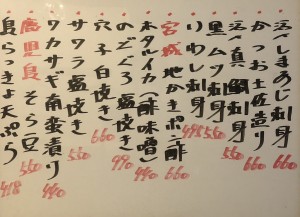 淡べしまあじ刺身 660
かつお土佐造り 660
淡べ真鯛刺身 560
黒ムツ刺身 560
いわし刺身 495
宮城 地かきポン酢 660
ホタルイカ(酢味噌) 440
のどぐろ塩焼き 990
穴子白焼き 660
サワラ塩焼き 560
ワカサギ南蛮漬け 440
鹿児島 そら豆 560
島らっきょ天ぷら 418